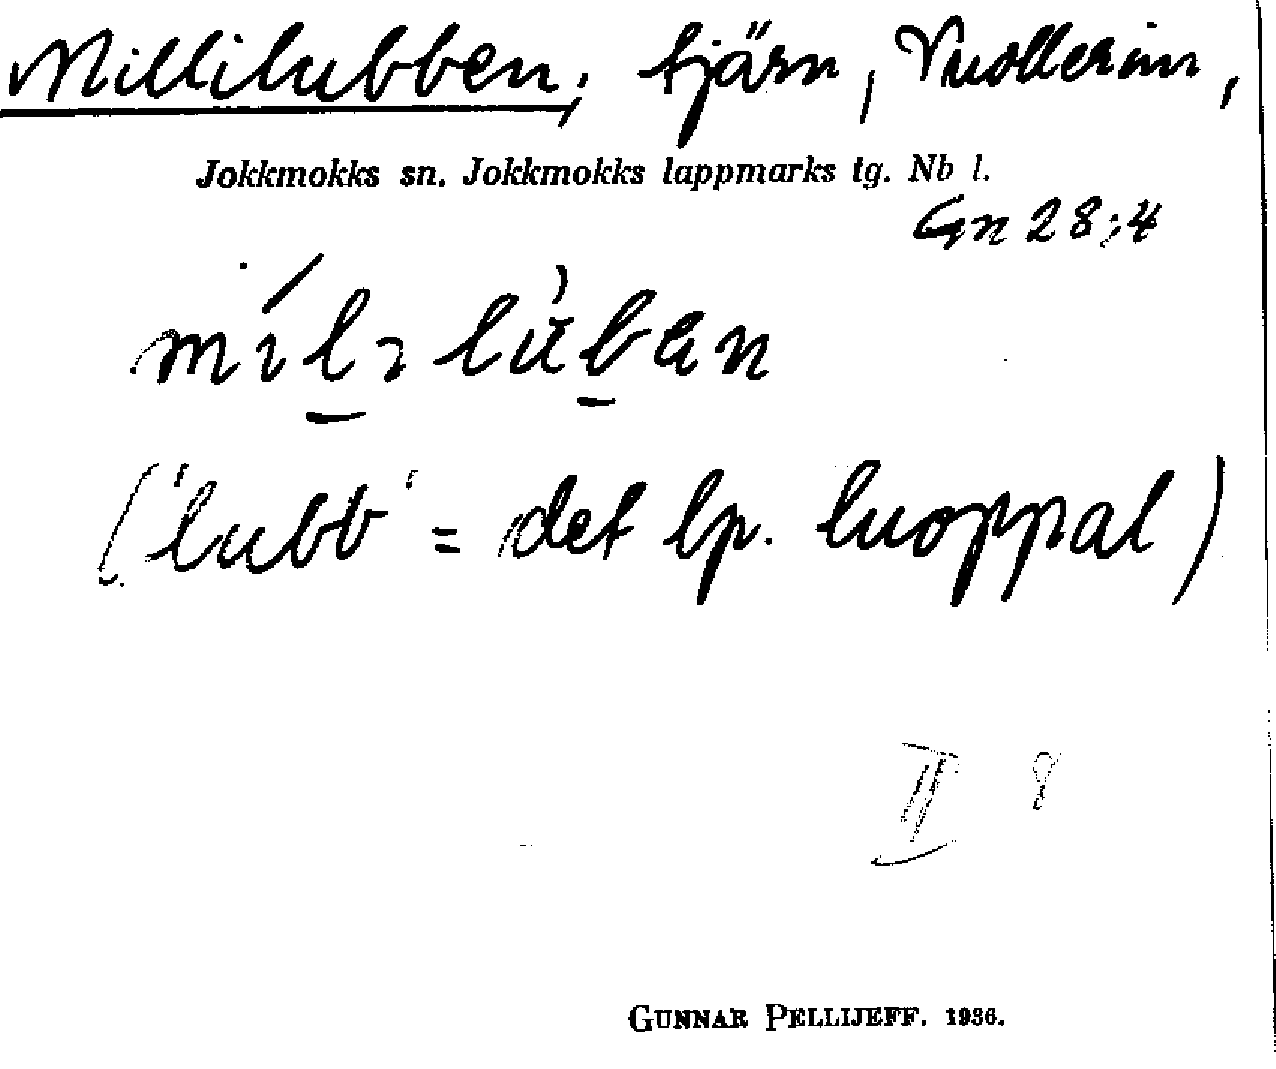 Millilubben, tjärn, Vuollerim,
Jokkmokks sn. Jokkmokks lappmarks tg. Nb l.
Gn 28;4
('lubb' = det lp. luoppal)
II 8
GUNNAR PELLIJEFF. 1936.